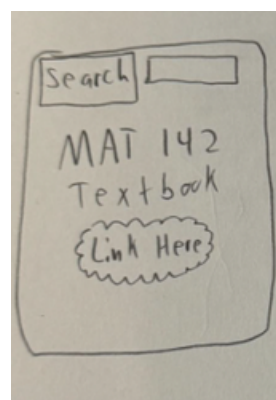 Search
MAT 142
Textbook
Link Here